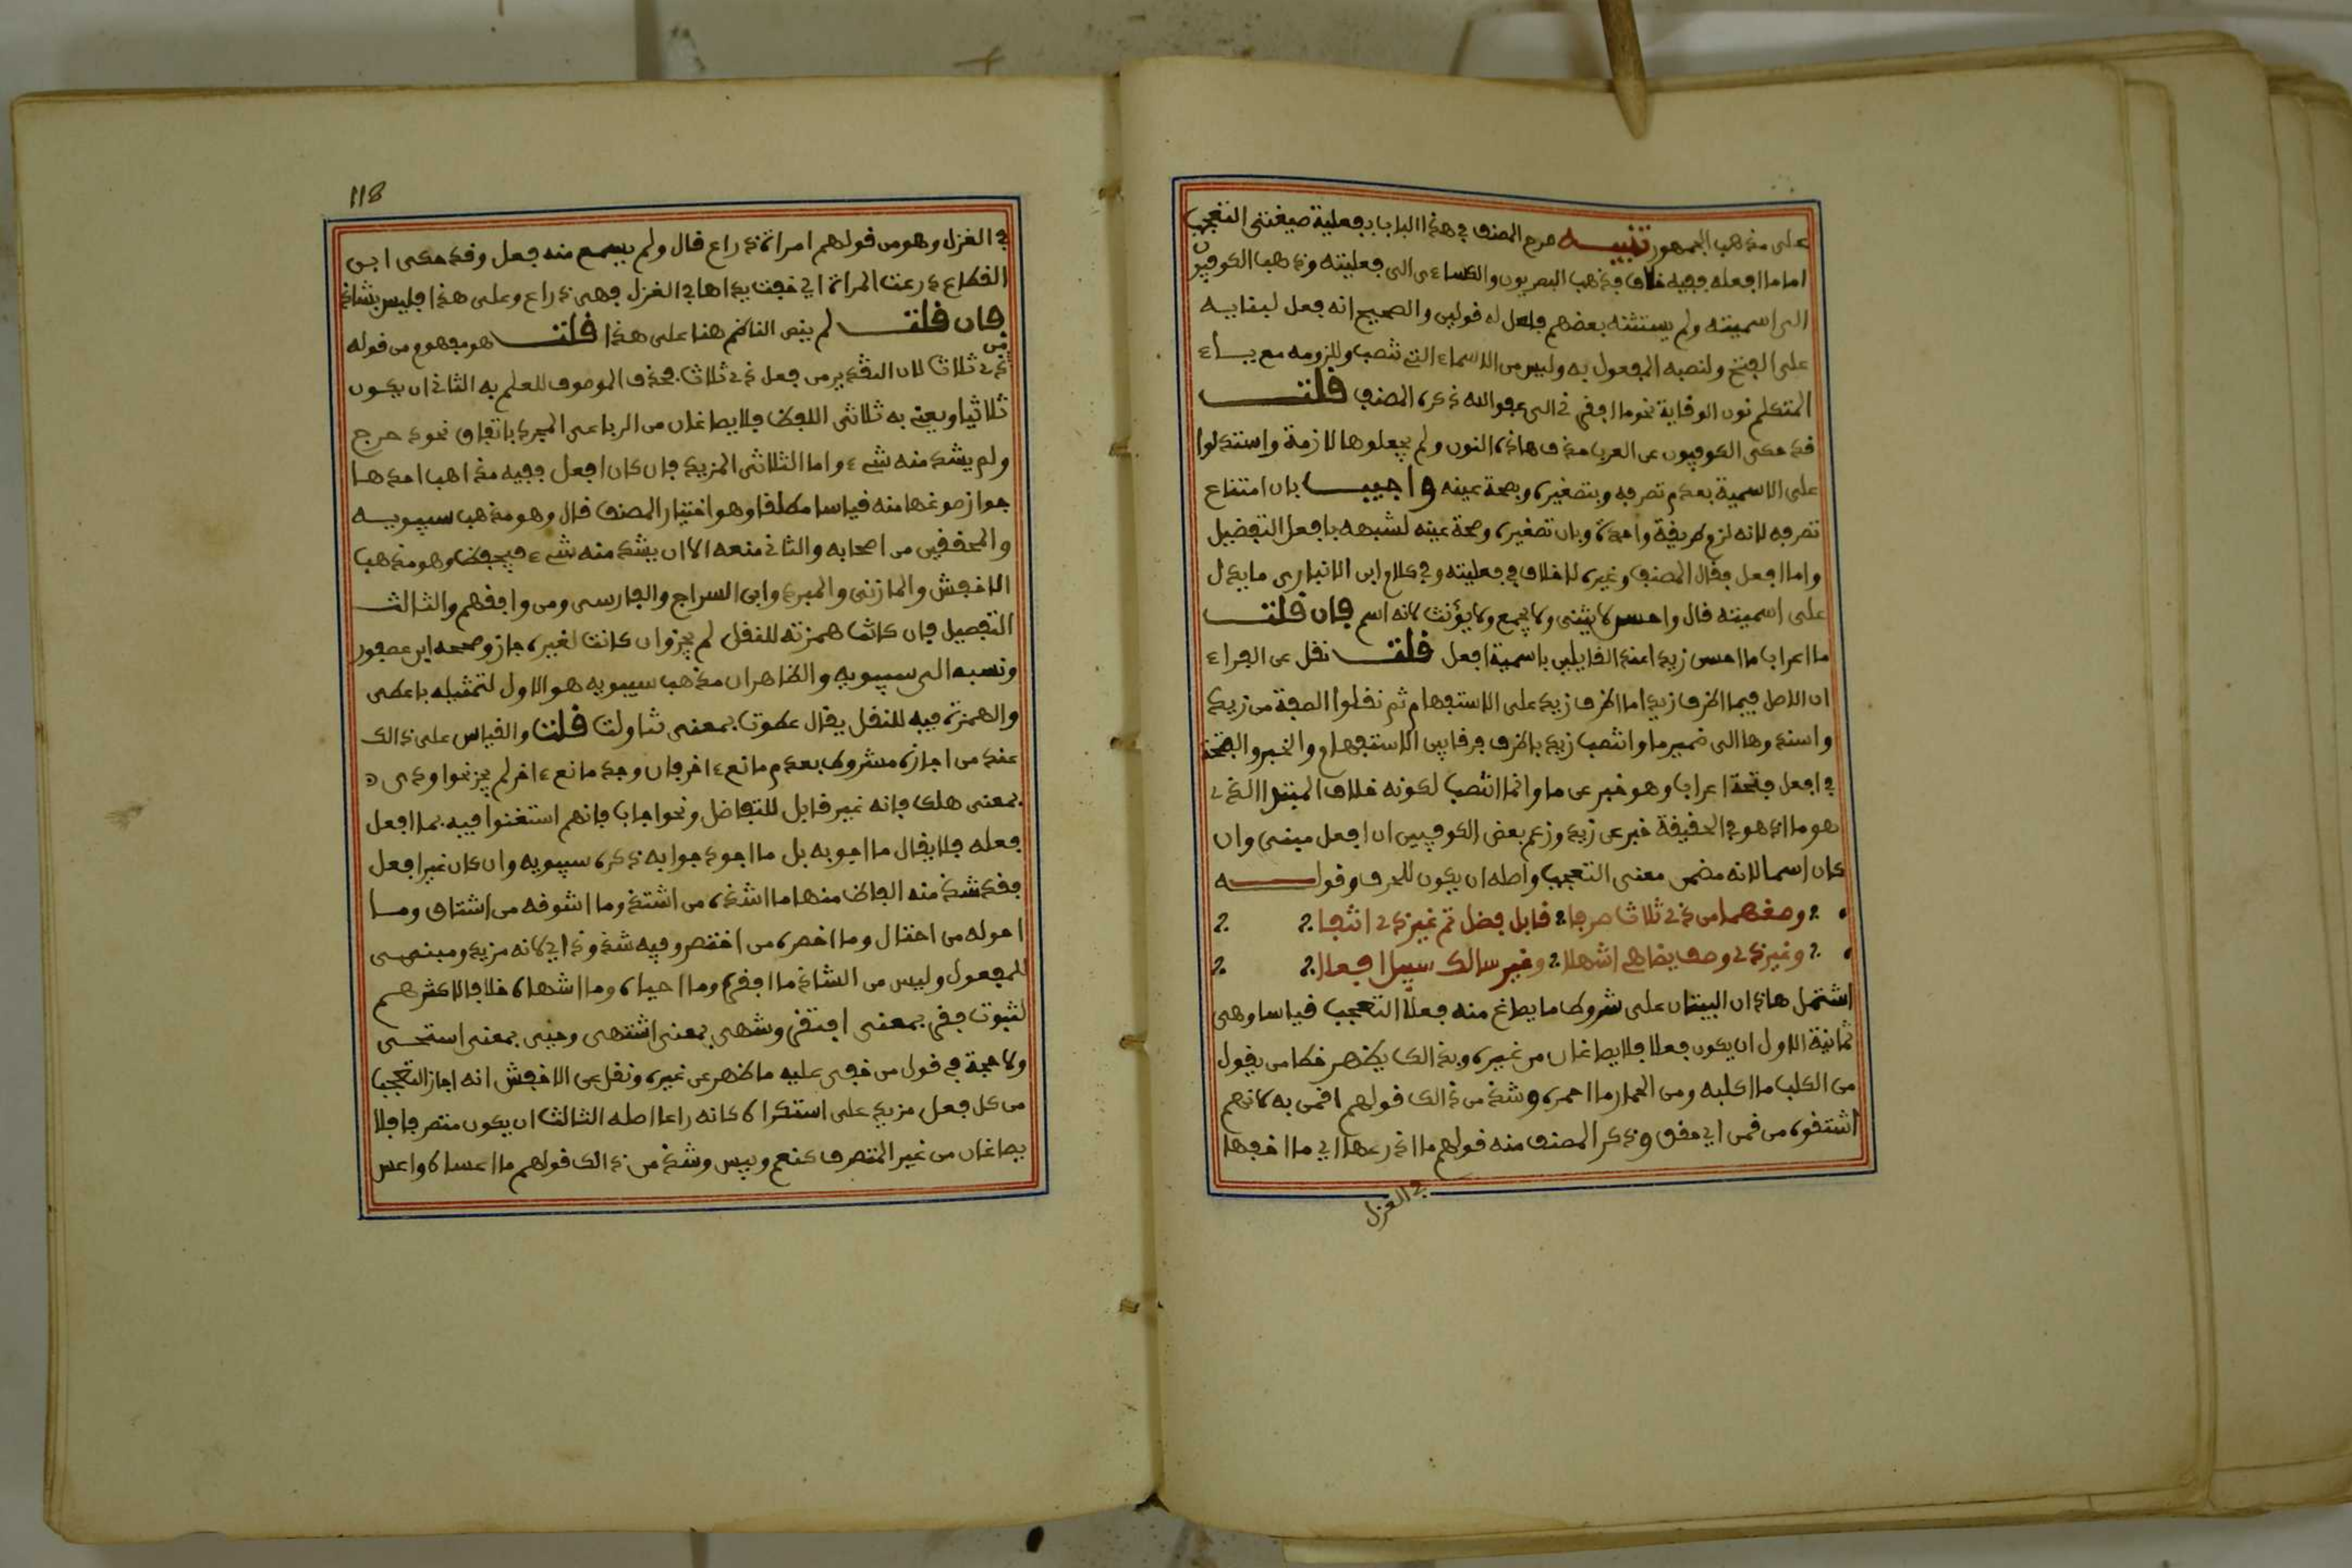 على مذهب الجمهور تنبيـــه صرح المصنف في هذا الباب بفعلية صيغتي التعجب
اما ما افعله ففيه خلاف فذهب البصريون والكساءي الى فعليته وذهب الكوفيون
الى اسميته ولم يستثنه بعضهم فلعل له قولين والصحيح انه فعل لبنايـه
على الفتح ولنصبه المفعول به وليس من الاسماء التي تنصب وللزومه مع يـاء
المتكلم نون الوقاية نحو ما افقرني الى عفو الله ذكره المصنف قلتـــ
قد حكى الكوفيون عن العرب حذف هاذه النون ولم يجعلوها لازمة واستدلوا
على الاسمية بعدم تصرفه وبتصغيره وبصحة عينه واجيبـــ بان امتناع
تصرفه لانه لزم طريقة واحدة وبان تصغيره وصحة عينه لشبهه بافعل التفضيل
واما افعل فقال المصنف وغيره لا خلاف في فعليته وفي كلام ابن الانباري ما يدل
على اسميته قال واحسن لا يثنى ولا يجمع ولا يؤنث لانه اسم فان قلتـــ
ما اعراب ما احسن زيد اعند القايلين باسمية افعل قلتـــ نقل عن الفراء
ان الاصل فيما اظرف زيد اما اظرف زيد على الاستفهام ثم نقلوا الصفة من زيد
واسندوها الى ضمير ما وانتصب زيد باظرف فرقا بين الاستفهام والخبر والفتحة
في افعل فتحة اعراب وهو خبر عن ما وانما انتصب لكونه خلاف المبتدا الذي
هو ما اذ هو في الحقيقة خبر عن زيد وزعم بعض الكوفيين ان افعل مبني وان
كان اسما لانه مضمن معنى التعجب واصله ان يكون للحرف وقولـــه
وصغهما من ذي ثلاث صرفا قابل فضل تم غير ذي انتفا
وغير ذي وصف يضاهي اشهلا وغير سالك سبيل افعلا
اشتمل هاذان البيتان على شروط ما يصاغ منه فعلا التعجب قياسا وهي
ثمانية الاول ان يكون فعلا فلا يصاغان من غيره وبذالك يظهر خطا من يقول
من الكلب ما اكلبه ومن الحمار ما احمره وشذ من ذالك قولهم اقمن به كانهم
اشتقوه من قمن اي حقق وذكر المصنف منه قولهم ما اذرعها اي ما اخفها
في الغزل
118
في الغزل وهو من قولهم امراة ذراع قال ولم يسمع منه فعل وقد حكى ابن
القطاع ذرعت المراة اي خفت يداها في الغزل فهي ذراع وعلى هذا فليس بشاذ
فان قلتـــ لم ينص الناظم هنا على هذا قلتـــ هو مفهوم من قوله
من
ذي ثلاث لان التقدير من فعل ذي ثلاث فحذف الموصوف للعلم به الثاني ان يكون
ثلاثيا ويعني به ثلاثي اللفظ فلا يصاغان من الرباعي المجرد باتفاق نحو دحرج
ولم يشذ منه شيء واما الثلاثي المزيد فان كان افعل ففيه مذاهب احدهـا
جواز صوغهما منه قياسا مطلقا وهو اختيار المصنف قال وهو مذهب سيبويـه
والمحققين من اصحابه والثاني منعه الا ان يشذ منه شيء فيحفظ وهو مذهب
الاخفش والمازني والمبرد وابن السراج والفارسي ومن وافقهم والثالثـ
التفصيل فان كانت همزته للنقل لم يجز وان كانت لغيره جاز وصححه ابن عصفور
ونسبه الى سيبويه والظاهر ان مذهب سيبويه هو الاول لتمثيله باعطى
والهمزة فيه للنقل يقال عطوت بمعنى تناولت قلت والقياس على ذالك
عند من اجازه مشروط بعدم مانع ءاخر فان وجد مانع ءاخر لم يجز نحو اودى
بمعنى هلك فانه غير قابل للتفاضل ونحو اجاب فانهم استغنوا فيه بما افعل
فعله فلا يقال ما اجوبه بل ما اجود جوابه ذكره سيبويه وان كان غير افعل
فقد شذ منه الفاظ منها ما اشده من اشتد وما اشوقه من اشتاق ومـا
احوله من احتال وما اخصره من اختصر وفيه شذوذ اي لانه مزيد ومبنى
للمفعول وليس من الشاذ ما افقره وما احياه وما اشهاه خلافا لاكثرهـم
لثبوت فقر بمعنى افتقر وشهي بمعنى اشتهى وحيي بمعنى استحـى
ولا حجة في قول من خفي عليه ما ظهر عن غيره ونقل عن الاخفش انه اجاز التعجب
من كل فعل مزيد على استكراه كانه راعا اصله الثالث ان يكون متصرفا فلا
يصاغان من غير المتصرف كنعم وبيس وشذ من ذالك قولهم ما اعساه واعس